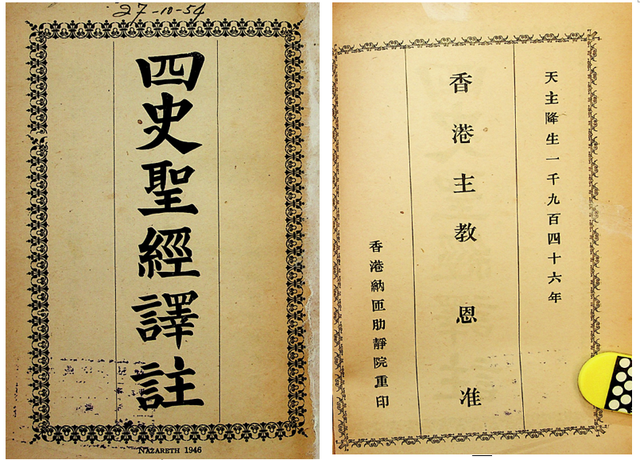 27-10-54
四史聖經譯註
NAZARETH 1946
天主降生一千九百四十六年
香港主教恩准
香港納匝肋靜院重印